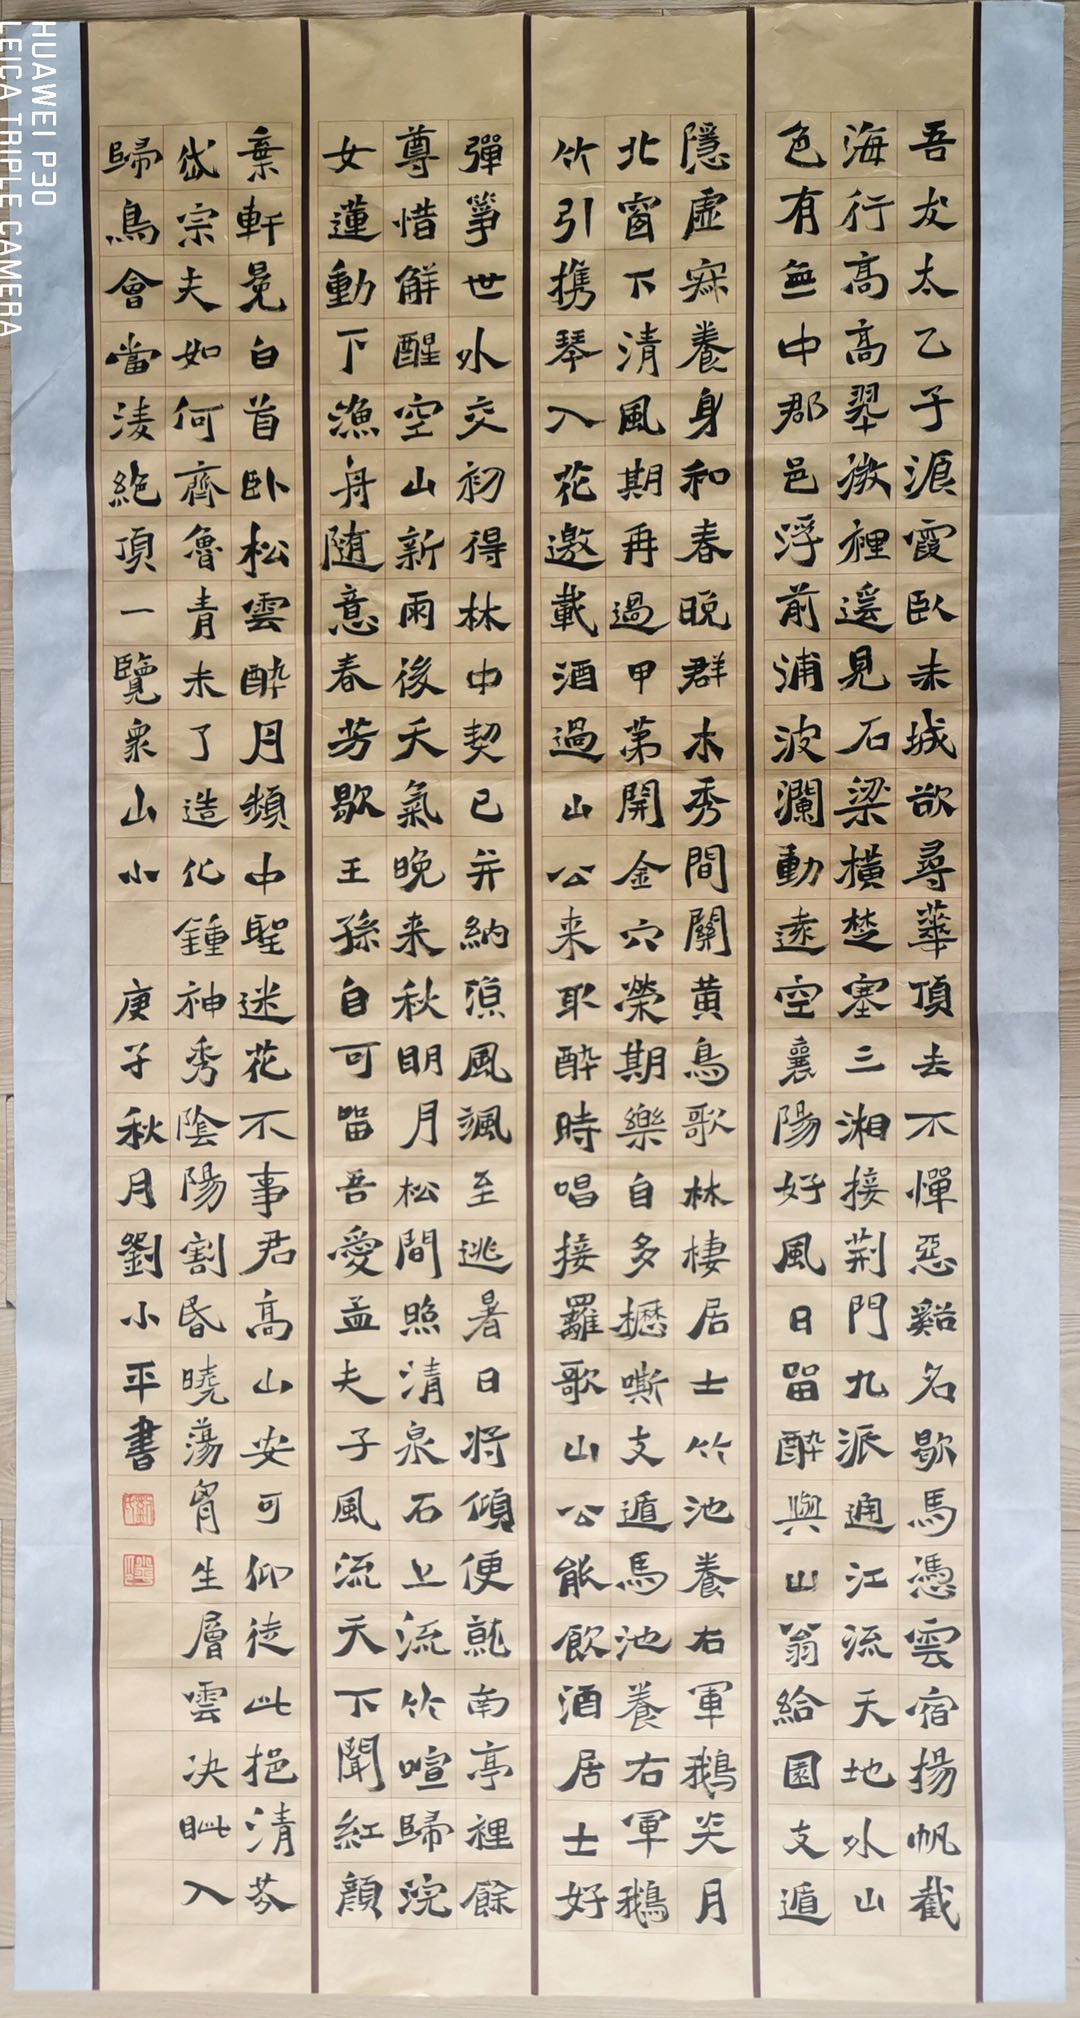 吾友太乙子湌霞臥赤城欲尋華頂去不憚惡谿名歇馬憑雲宿揚帆截
海行高高翠微裡遥見石梁橫楚塞三湘接荊門九派通江流天地外山
色有無中郡邑浮前浦波瀾動遠空襄陽好風日留醉與山翁給園支遁
隱虛寂養身和春晚群木秀間關黃鳥歌林棲居士竹池養右軍鵝炎月
北窗下清風期再過甲第開金穴榮期樂自多櫪嘶支遁馬池養右軍鵝
竹引携琴入花邀載酒過山公来取醉時唱接羅歌山公能飲酒居士好
彈箏世外交初得林中契已并納涼風颯至逃暑日將傾便就南亭裡餘
尊惜解醒空山新雨後天氣晚来秋明月松間照清泉石上流竹喧歸浣
女蓮動下漁舟随意春芳歇王孫自可留吾愛孟夫子風流天下聞紅顏
棄軒冕白首卧松雲醉月頻中聖迷花不事君高山安可仰徒此挹清芬
岱宗夫如何齊魯青未了造化鍾神秀陰陽割昏曉蕩胷生層雲决眦入
歸鳥會當淩絕頂一覽衆山小 庚子秋月劉小平書
HUAWEI P30
LEICA TRIPLE CAMERA